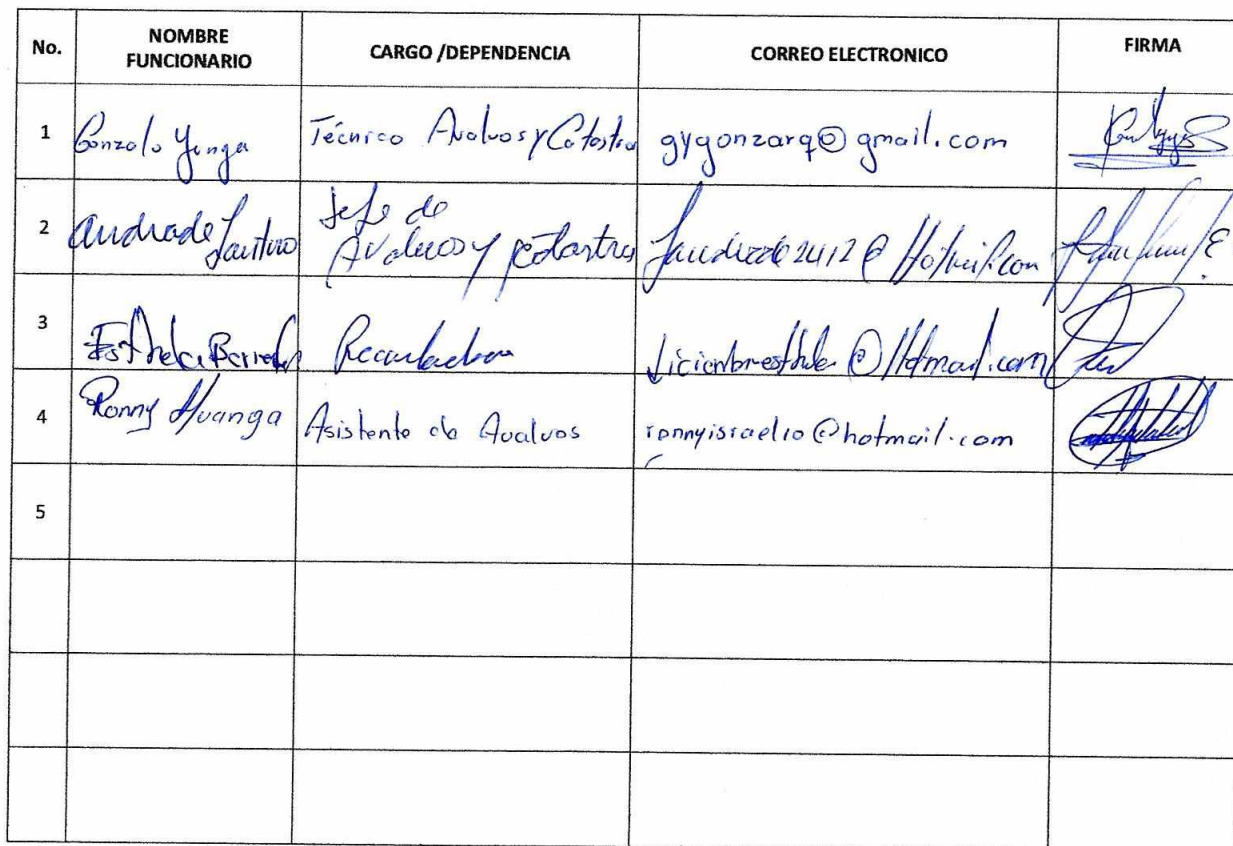 No. NOMBRE FUNCIONARIO CARGO /DEPENDENCIA CORREO ELECTRONICO FIRMA
1 Gonzalo Yunga Técnico Avaluos y Catastro gygonzarq@gmail.com
2 Andrade Lautaro Jefe de Avaluos y Catastros @Hotmail.com
3 Recaudadora @Hotmail.com
4 Ronny Huanga Asistente de Avaluos ronnyisrael10@hotmail.com
5